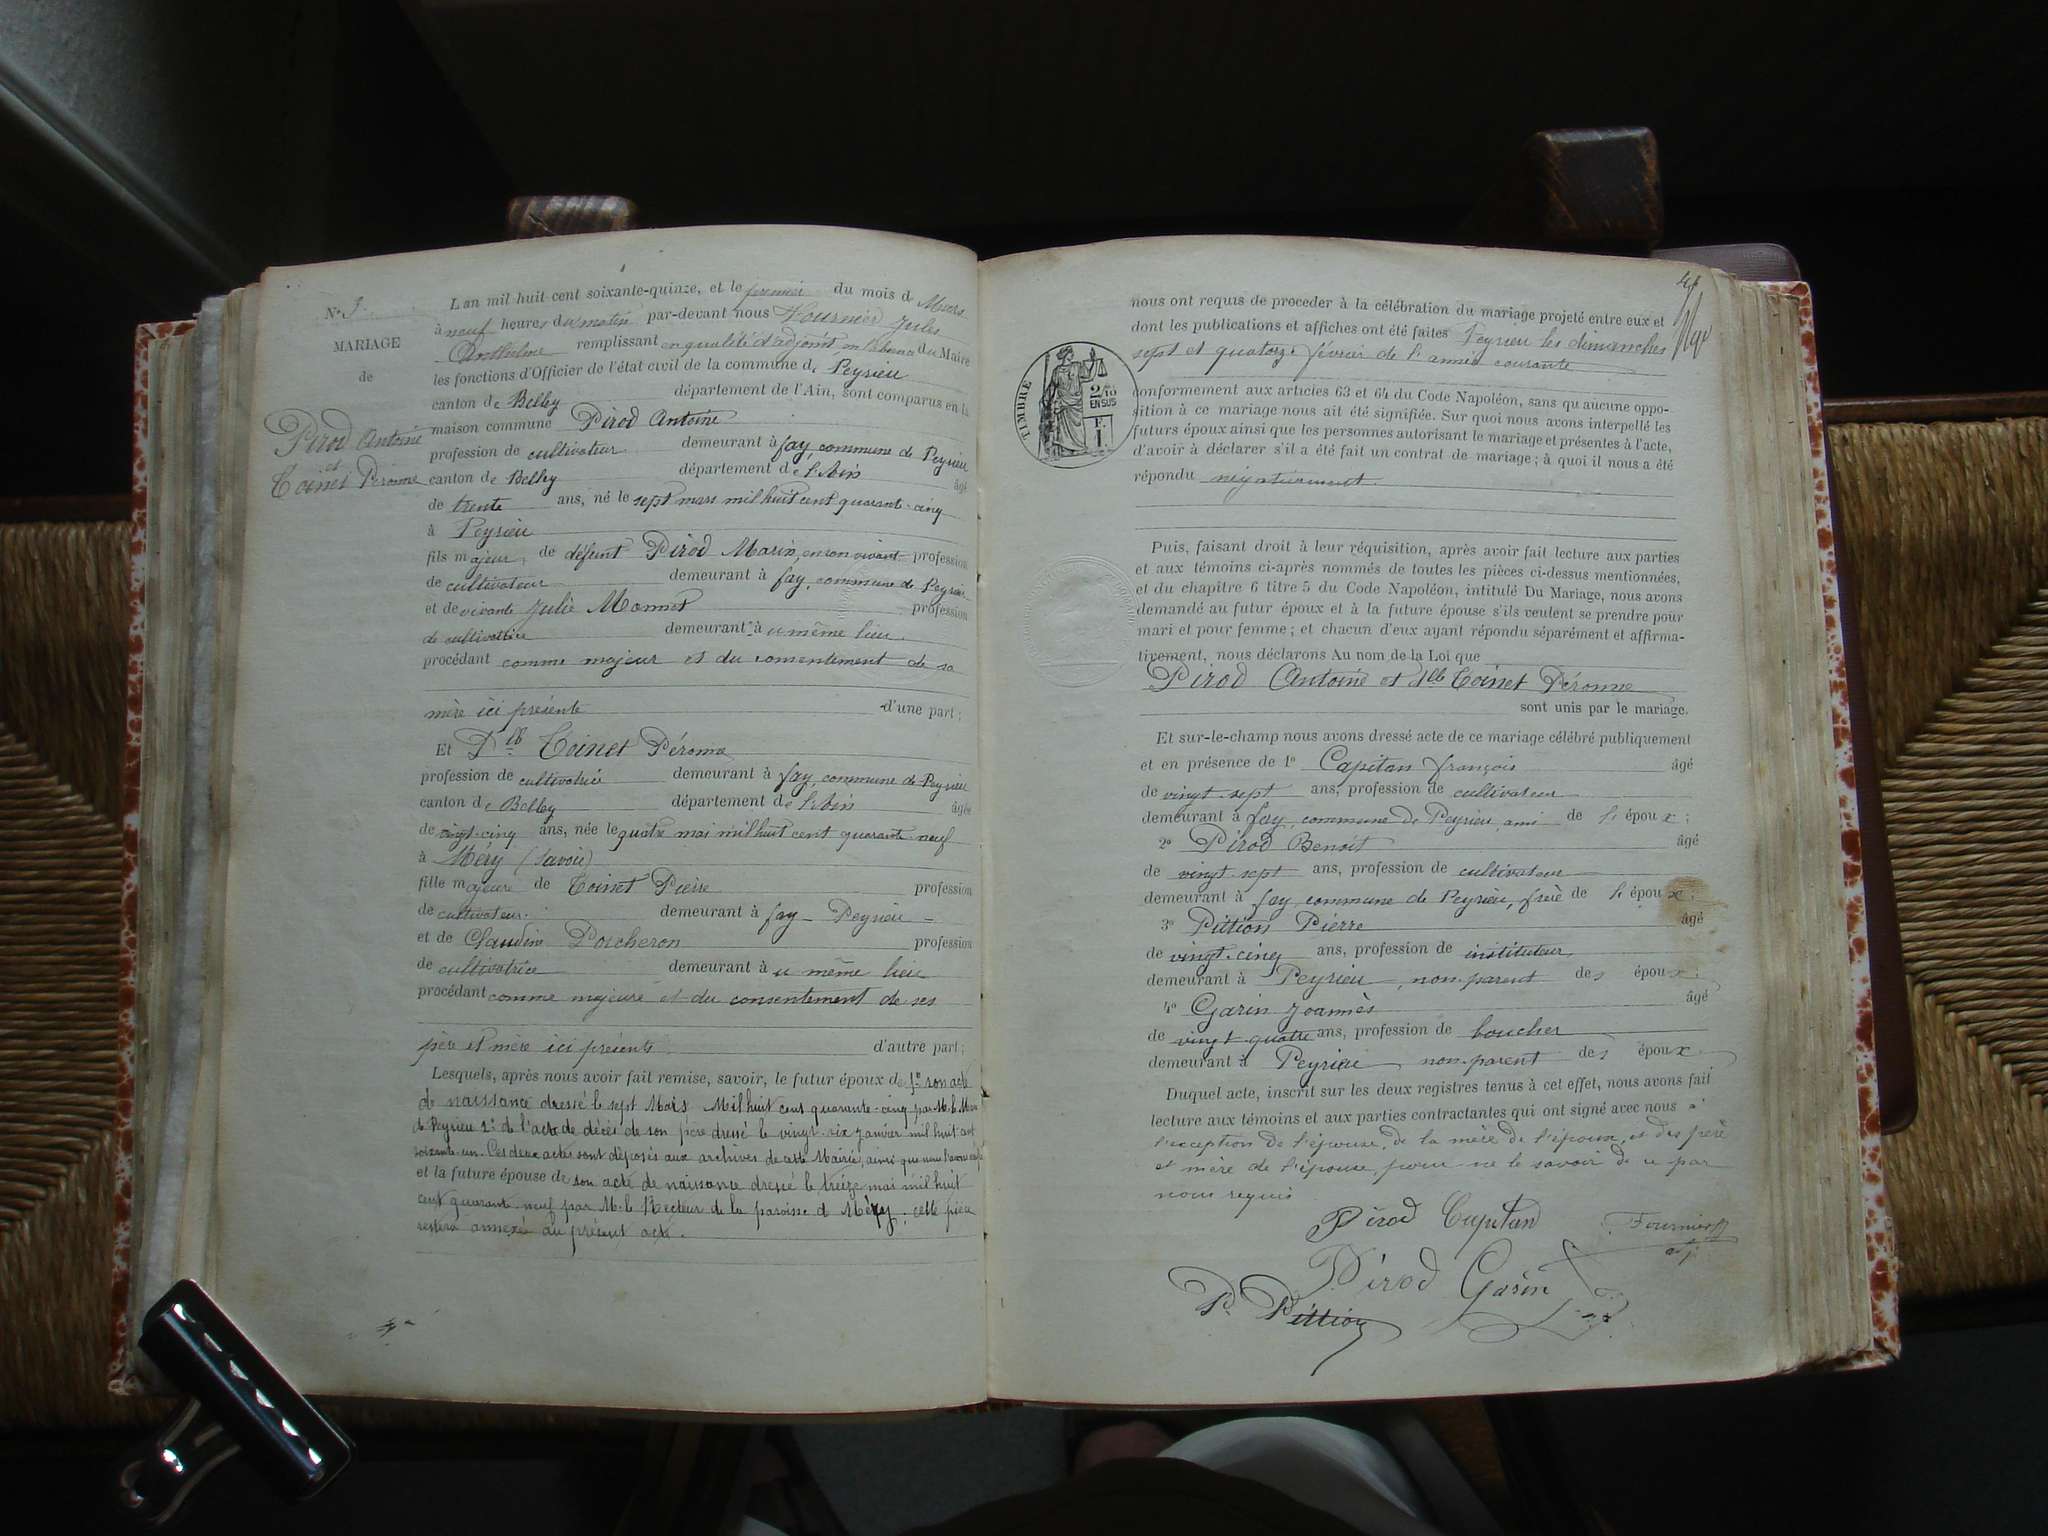 N° 3.
MARIAGE
de
Pirod Antoine
et
Coinet Péronne
L'an mil huit cent soixante-quinze, et le premier du mois de Mars
à neuf heures du matin par-devant nous Fournier Jules
Anthelme remplissant en qualité d'adjoint, en l'absence du Maire
les fonctions d'Officier de l'état civil de la commune de Peyrieu
canton de Belley département de l'Ain, sont comparus en la
maison commune Pirod Antoine
profession de cultivateur demeurant à fay, commune de Peyrieu
canton de Belley département de l'Ain âgé
de trente ans, né le sept mars mil huit cent quarante-cinq
à Peyrieu
fils majeur, de défunt Pirod Marin, en son vivant profession
de cultivateur demeurant à fay, commune de Peyrieu
et de vivante Julie Monnet profession
de cultivatrice demeurant au même lieu
procédant comme majeur et du consentement de sa
mère ici présente d'une part;
Et Dlle Coinet Péronne
profession de cultivatrice demeurant à fay, commune de Peyrieu
canton de Belley département de l'Ain âgée
de vingt-cinq ans, née le quatre mai mil huit cent quarante-neuf
à Méry (Savoie)
fille majeure de Coinet Pierre profession
de cultivateur. demeurant à fay - Peyrieu -
et de Claudine Porcheron profession
de cultivatrice demeurant au même lieu
procédant comme majeure et du consentement de ses
père et mère ici présents d'autre part;
Lesquels, après nous avoir fait remise, savoir, le futur époux de 1° son acte
de naissance dressé le sept Mars Mil huit cent quarante-cinq par M. le Maire
de Peyrieu 2° de l'acte de décès de son père dressé le vingt-six janvier mil huit cent
soixante-un. Ces deux actes sont déposés aux archives de cette Mairie, ainsi que nous l'avons
et la future épouse de son acte de naissance dressé le treize mai mil huit
cent quarante-neuf par M. le Recteur de la paroisse de Méry; cette pièce
restera annexée au présent acte.
nous ont requis de proceder à la célébration du mariage projeté entre eux et
dont les publications et affiches ont été faites Peyrieu les dimanches
sept et quatorze février de l'année courante
TIMBRE
2/10
EN SUS
F.
1.
conformement aux articles 63 et 64 du Code Napoléon, sans qu'aucune oppo-
sition à ce mariage nous ait été signifiée. Sur quoi nous avons interpellé les
futurs époux ainsi que les personnes autorisant le mariage et présentes à l'acte,
d'avoir à déclarer s'il a été fait un contrat de mariage; à quoi il nous a été
répondu négativement.
Puis, faisant droit à leur réquisition, après avoir fait lecture aux parties
et aux témoins ci-après nommés de toutes les pièces ci-dessus mentionnées,
et du chapitre 6 titre 5 du Code Napoléon, intitulé Du Mariage, nous avons
demandé au futur époux et à la future épouse s'ils veulent se prendre pour
mari et pour femme; et chacun d'eux ayant répondu séparément et affirma-
tivement, nous déclarons Au nom de la Loi que
Pirod Antoine et Dlle Coinet Péronne
sont unis par le mariage.
Et sur-le-champ nous avons dressé acte de ce mariage célébré publiquement
et en présence de 1° Capitan françois âgé
de vingt sept ans, profession de cultivateur
demeurant à fay, commune de Peyrieu, ami de l'époux;
2° Pirod Benoit âgé
de vingt-sept ans, profession de cultivateur
demeurant à fay, commune de Peyrieu, frère de l'époux;
3° Pittion Pierre âgé
de vingt-cinq ans, profession de instituteur
demeurant à Peyrieu, non parent des époux.
4° Garin Joannès âgé
de vingt quatre ans, profession de boucher
demeurant à Peyrieu non parent des époux.
Duquel acte, inscrit sur les deux registres tenus à cet effet, nous avons fait
lecture aux témoins et aux parties contractantes qui ont signé avec nous à
l'exception de l'épouse, de la mère de l'époux, et des père
et mère de l'épouse, pour ne le savoir de ce par
nous requis
Pirod Capitan Fournier
Pirod Garin
P. Pittion